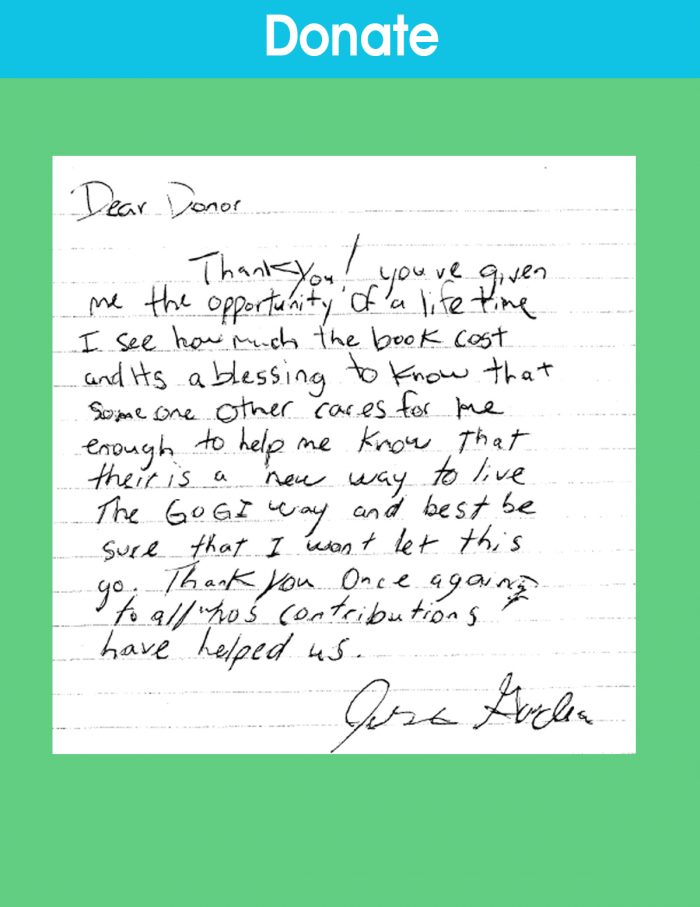 Donate
Dear Donor
Thank you! you've given
me the opportunity of a life time
I see how much the book cost
and its a blessing to know that
some one other cares for me
enough to help me know that
their is a new way to live
The GOGI way and best be
sure that I wont let this
go. Thank you Once again
to all who's contributions
have helped us.